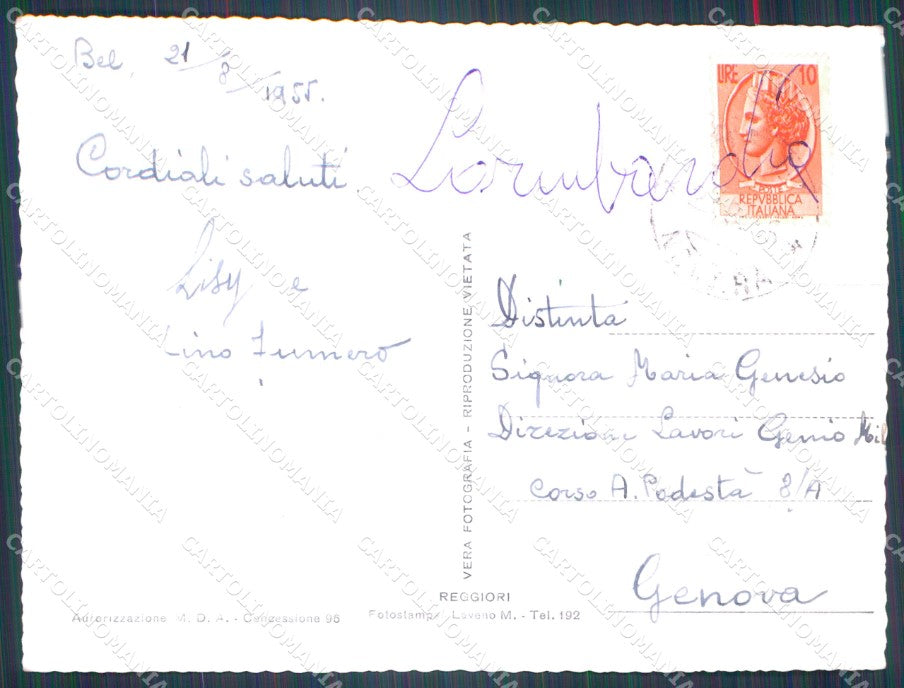 Bel, 21/8/1955.
Cordiali saluti
Lisy e
ino Fumero
Lombardo
LIRE 10
POSTE
REPVBBLICA
ITALIANA
Distinta
Signora Maria Genesio
Direzione Lavori Genio Mil
Corso A. Podestà 8/A
Genova
VERA FOTOGRAFIA - RIPRODUZIONE VIETATA
REGGIORI
Autorizzazione M. D. A. - Concessione 95 Fotostampa Laveno M. - Tel. 192
CARTOLINOMANIA